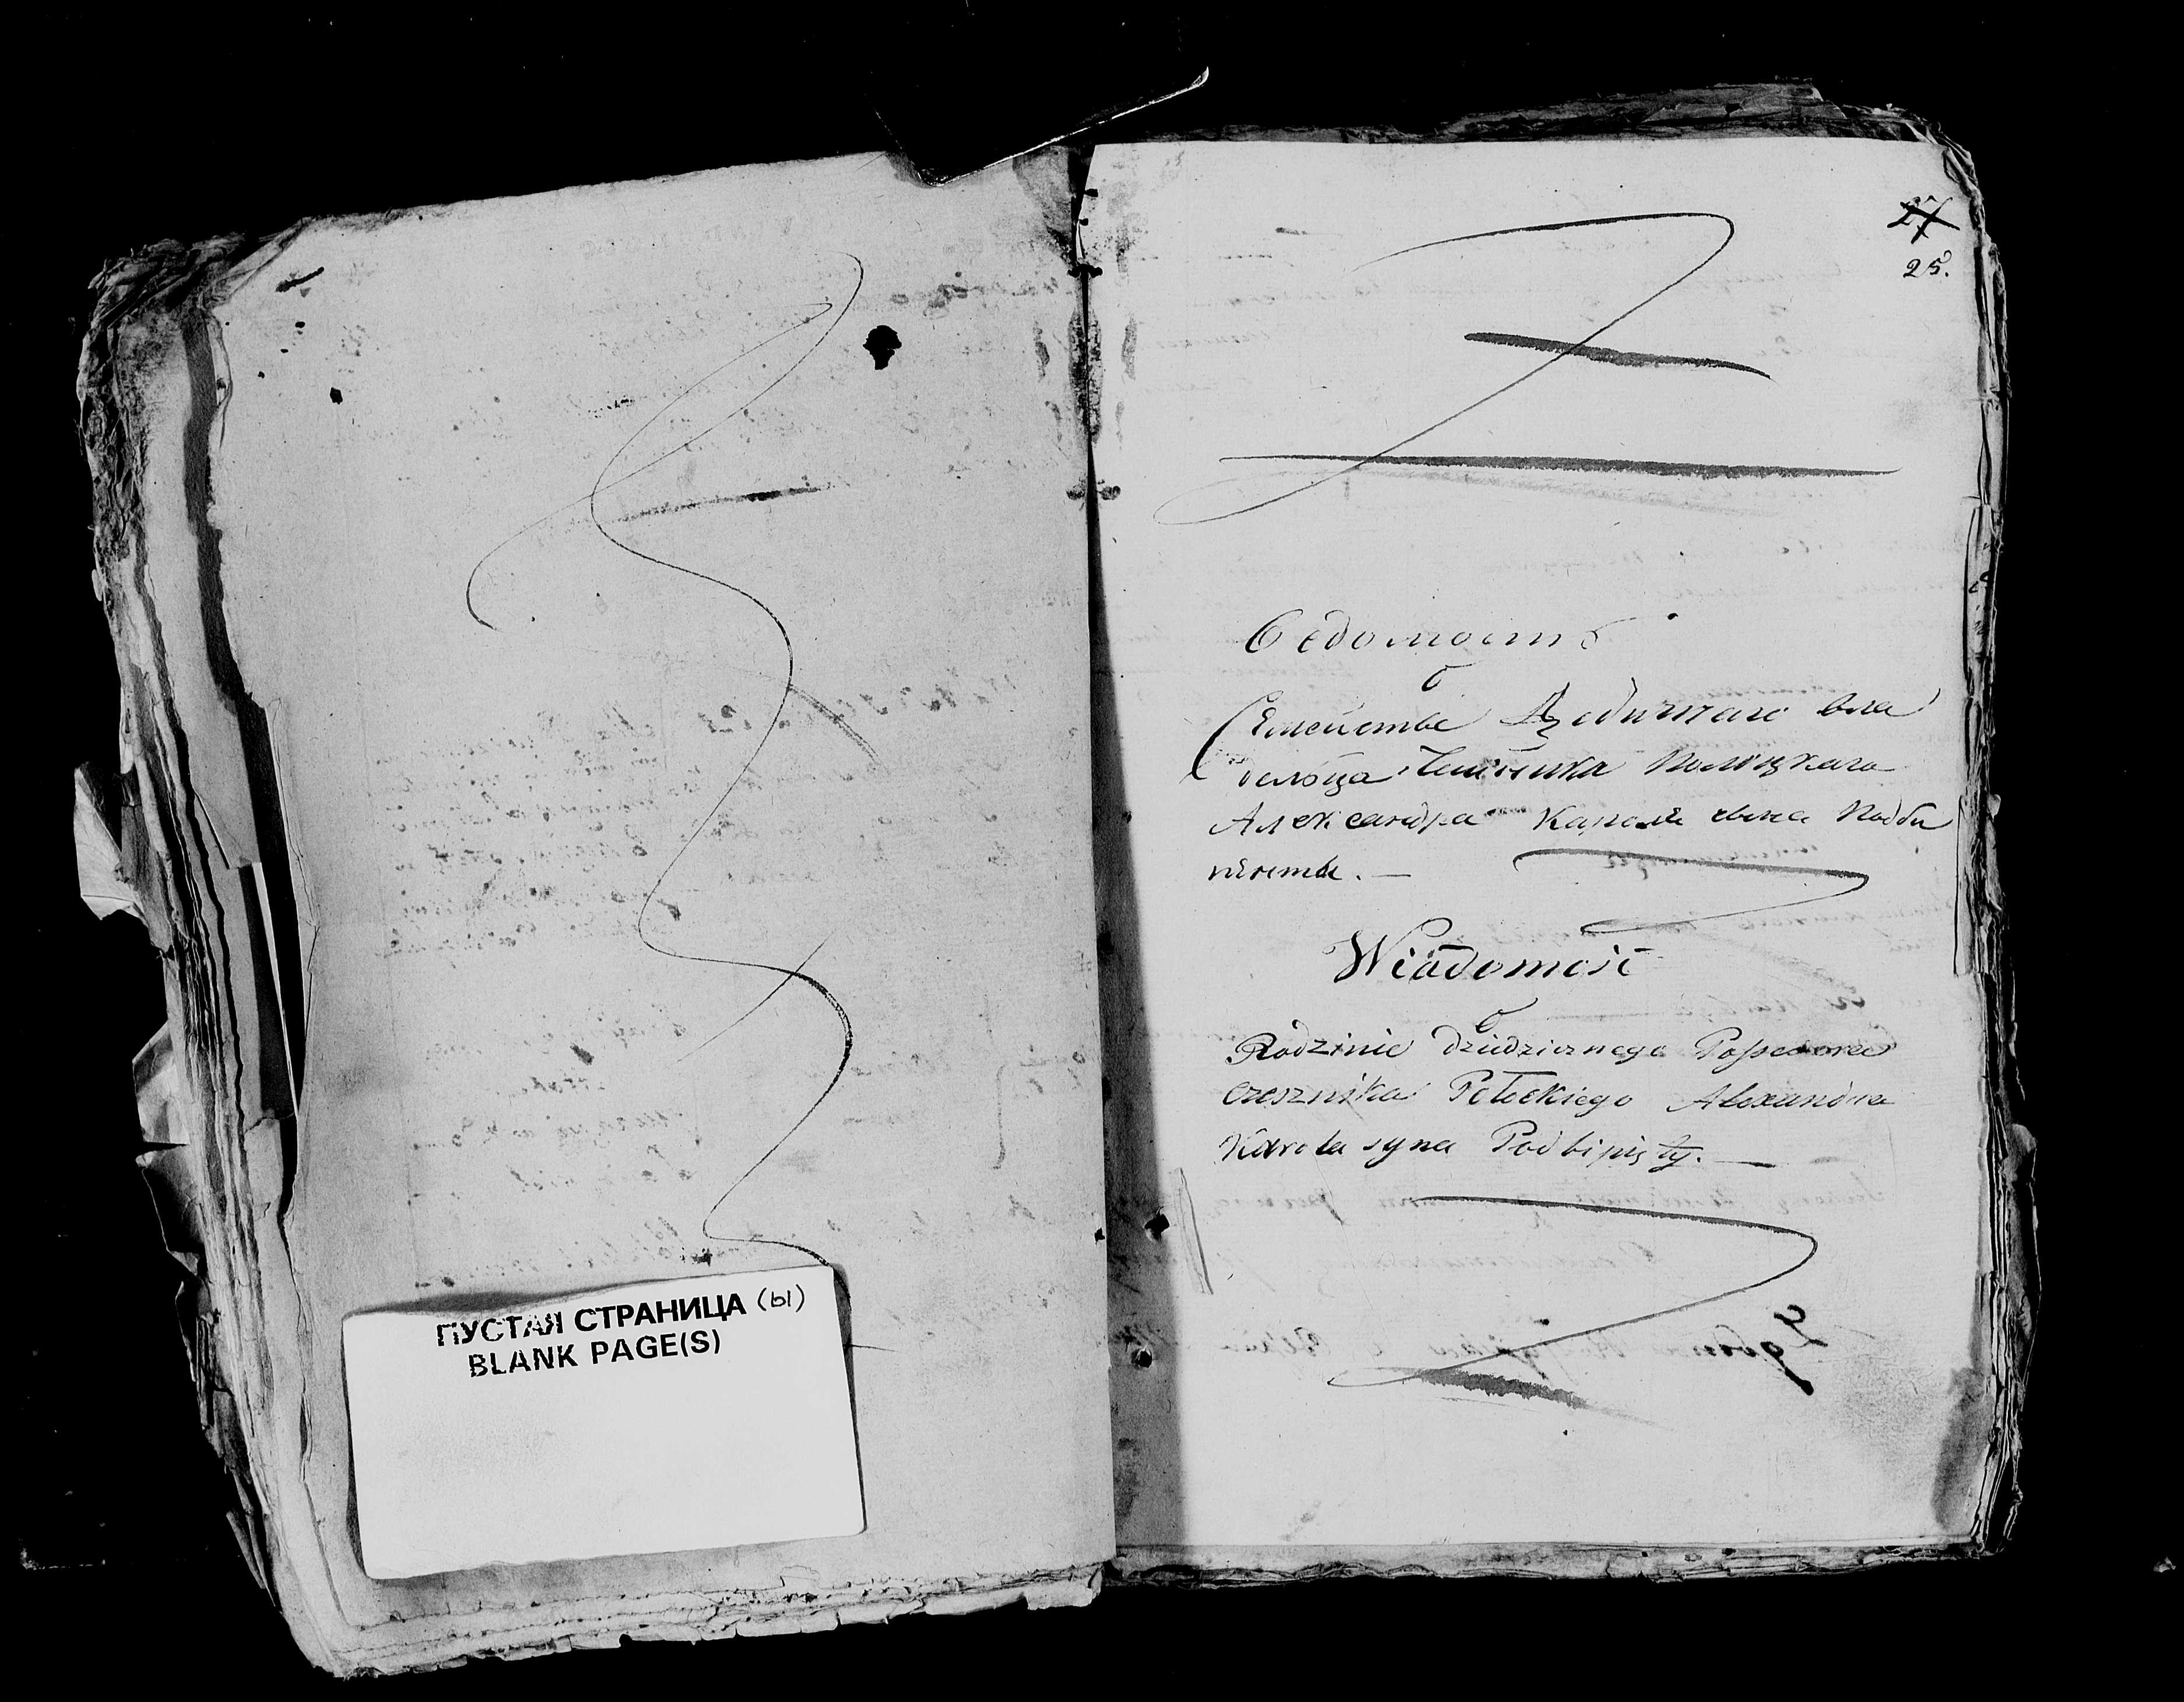 ПУСТАЯ СТРАНИЦА (ы)
BLANK PAGE(S)
27
25.
Ведомость
о
Семействе Дедичнаго вла
дельца Чешника Полоцкаго
Александра Кароля сына Подби
пенты. —
Wiadomość
o
Rodzinie dziedzicznego Possessora
czesznika Połockiego Alexandra
Karola syna Podbipięty. —